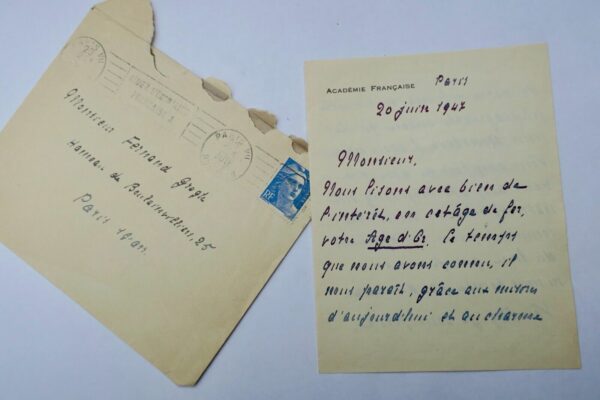 Monsieur Fernand Gregh
Hameau de Boulainvilliers, 25
Paris 16 em
RF
ACADÉMIE FRANÇAISE Paris
20 juin 1947
Monsieur,
Nous lisons avec bien de
l'intérêt, en cet âge de fer,
votre Age d'Or. Le temps
que nous avons connu, il
nous paraît, grâce aux
d'aujourd'hui et au charme